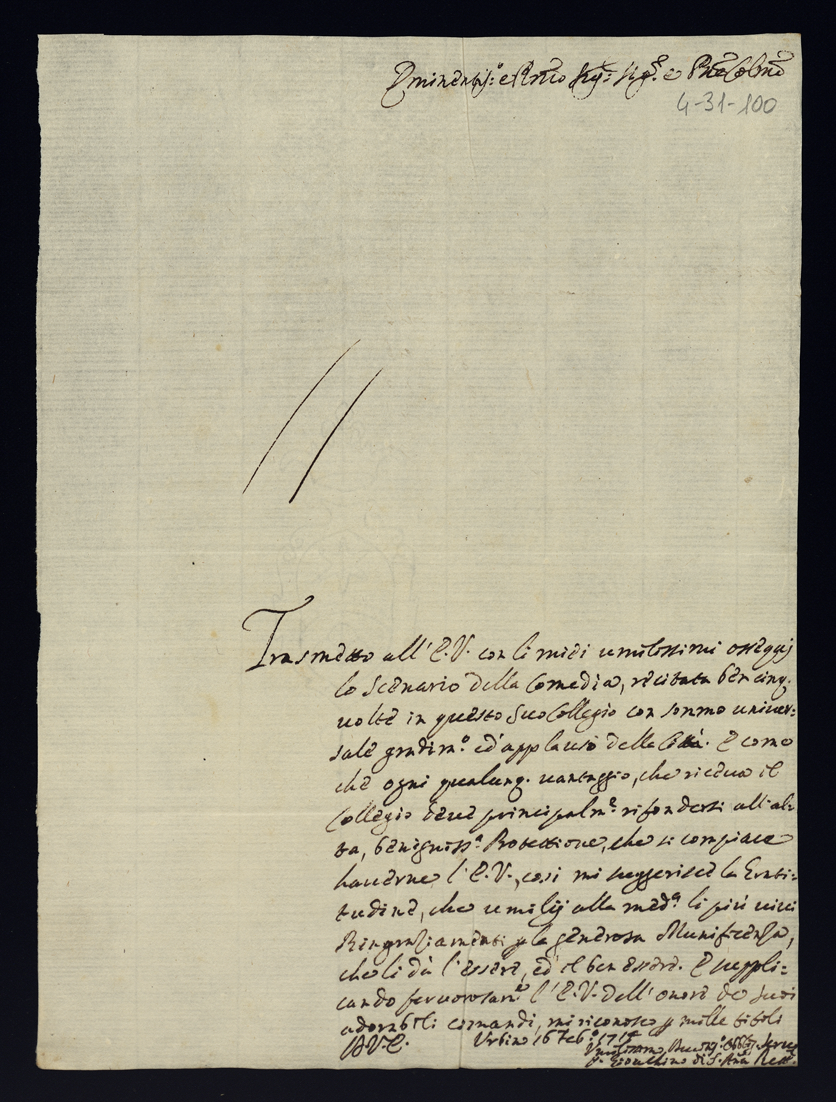 Eminentiss.o e R.mo Sig.re Sig.re e P.ne Col.mo
4-31-100
Trasmetto all'E.V. con li miei umilissimi ossequj
lo Scenario della Comedia, recitata ben cinq.
volte in questo Suo Collegio con sommo univer=
sale gradim.o ed'applauso della Città. E come
che ogni qualunq. vantaggio, che riceva il
Collegio deve principalm.e rifondersi all'al=
ta, benigniss.a Protettione, che si compiace
haverne l'E.V., così mi suggerisce la Grati=
tudine, che umilij alla med.a li più vivi
Ringratiamenti p la generosa Munificenza,
che li dà l'essere, ed'il ben essere. E suppli=
cando fervorosam.e l'E.V. dell'onore de suoi
adorabili comandi, mi riconosco p mille titoli
D.V.E. Urbino 16 Feb.o
Umilissimo, Devotis.o Obblig. Servo
Gioacchino di S. Anna Rett.e